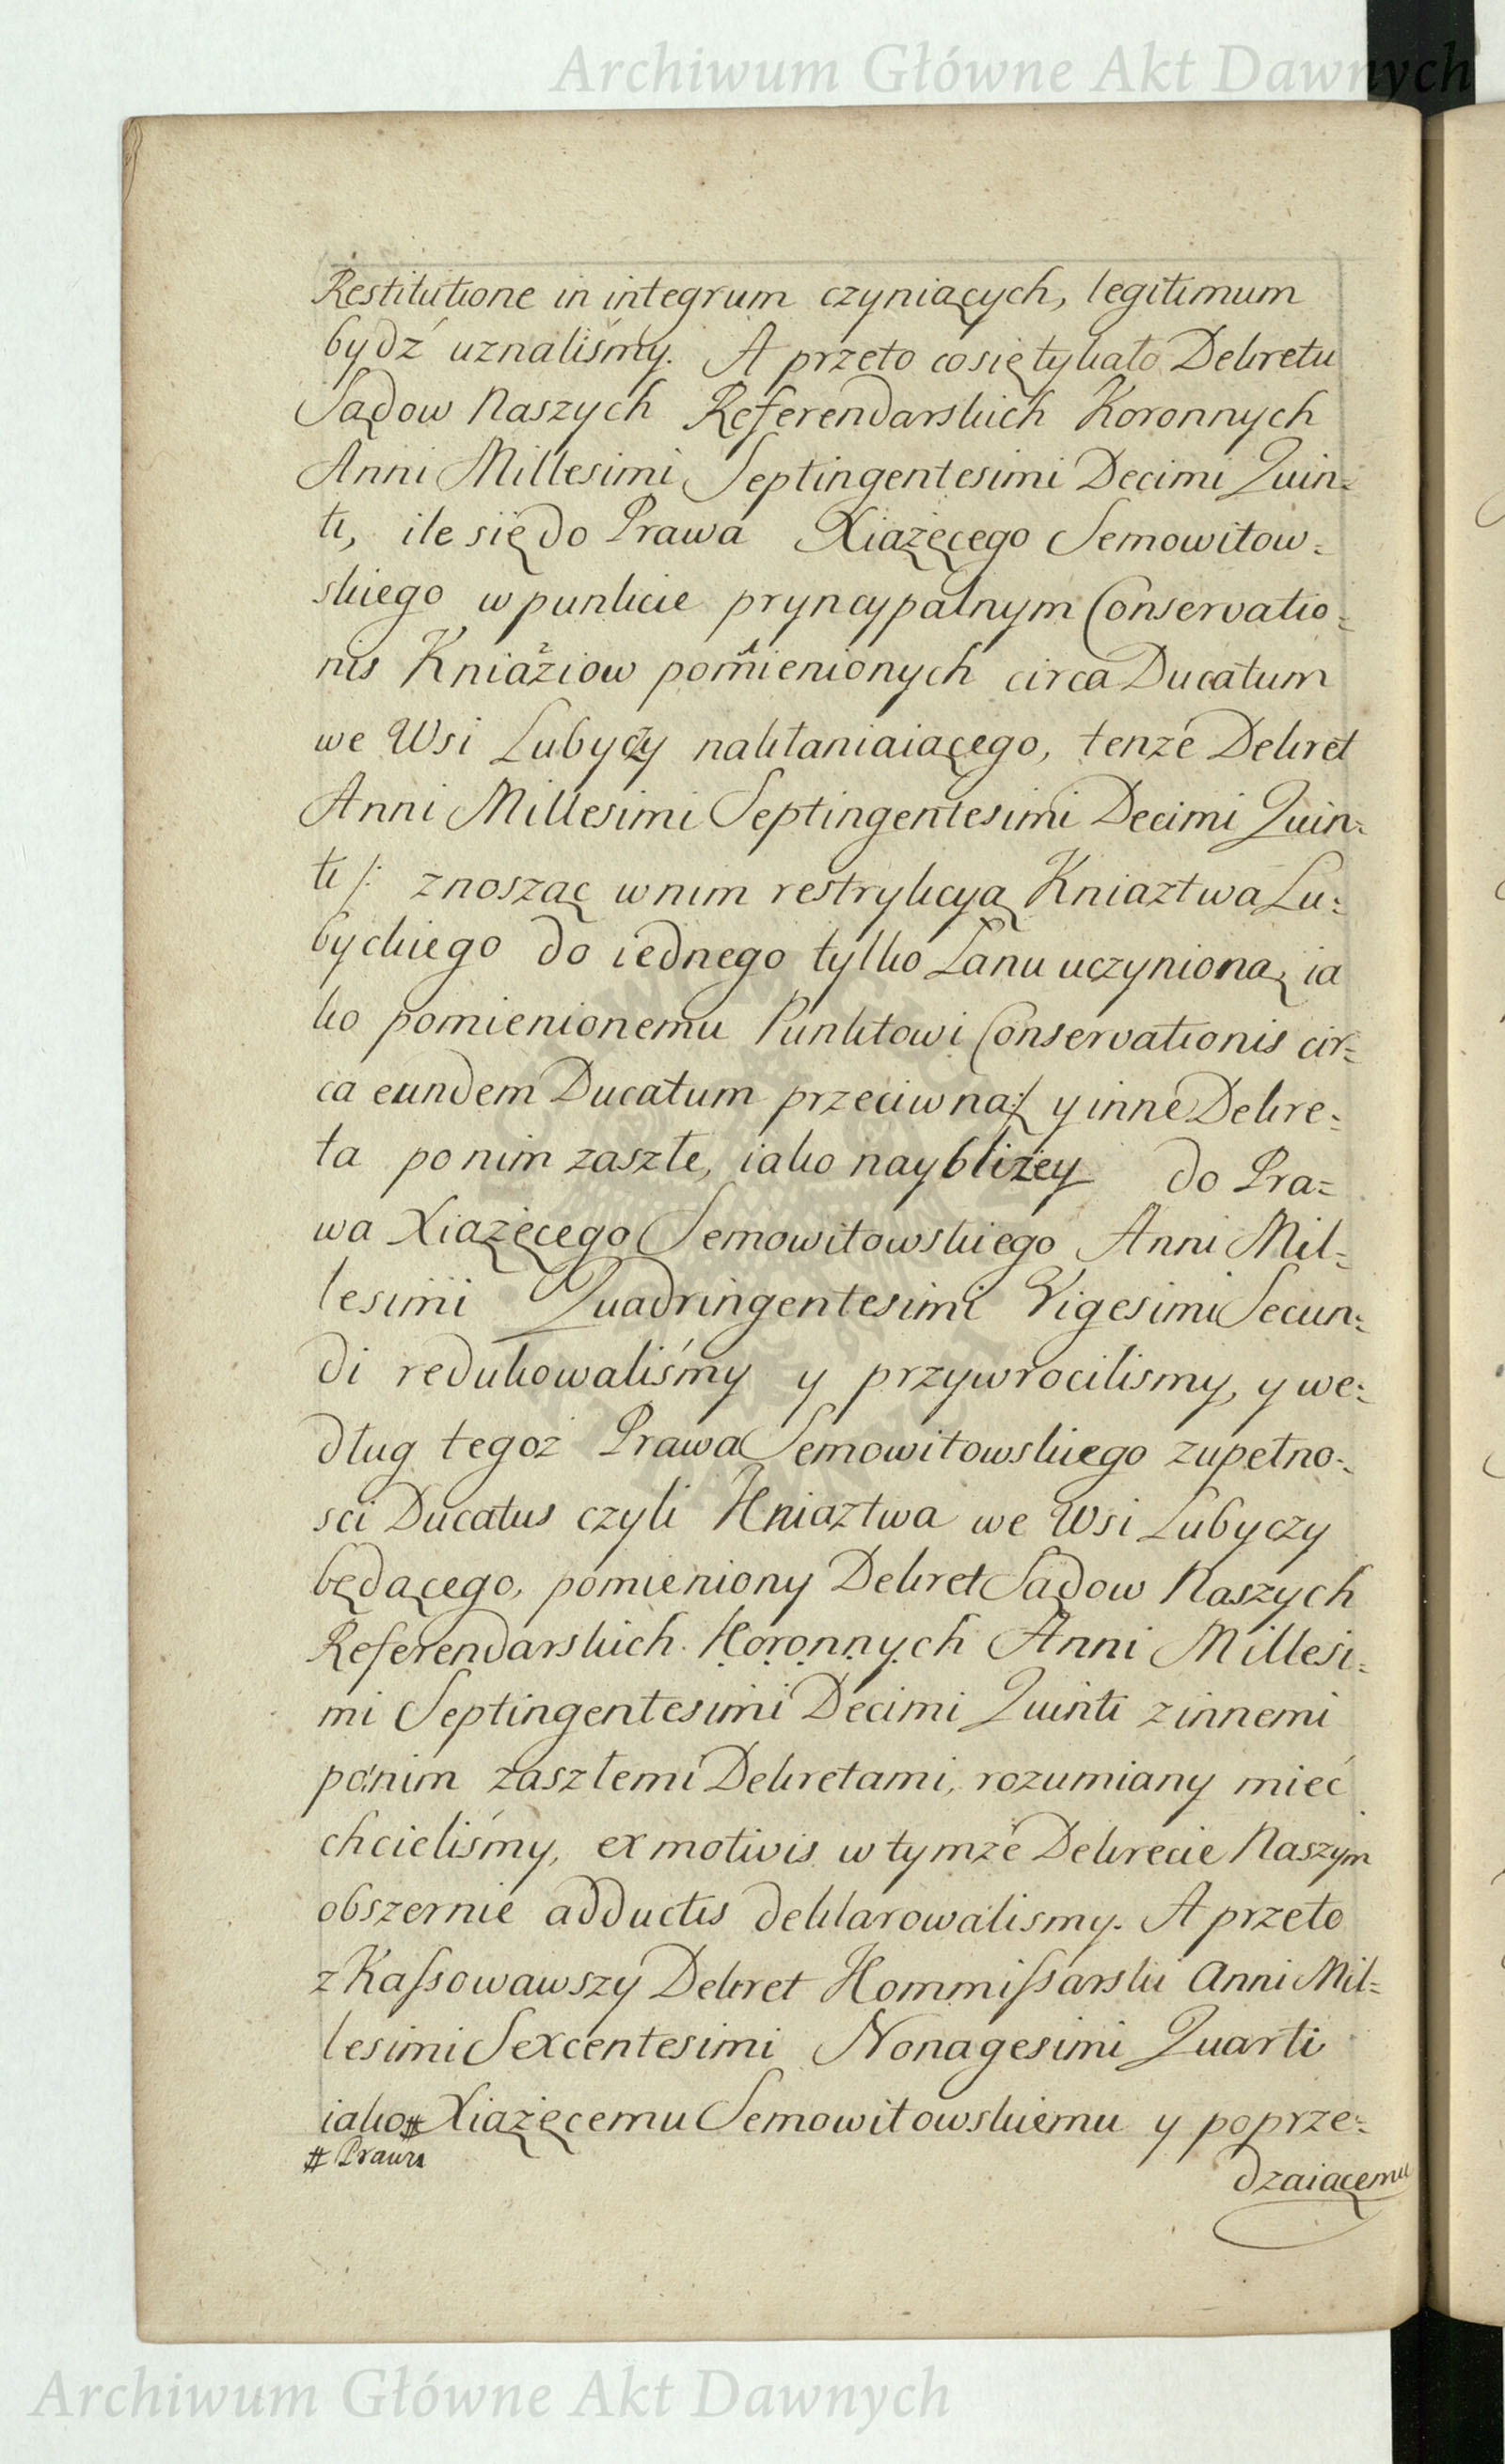 Archiwum Główne Akt Dawnych
Restitutione in integrum czyniących, legitimum
bydź uznaliśmy. A przeto co się tykało Dekretu
Sądow Naszych Referendarskich Koronnych
Anni Millesimi Septingentesimi Decimi Quin=
ti, ile się do Prawa Xiążęcego Semowitow=
skiego w punkcie pryncypalnym Conservatio=
nis Kniaźiow pomienionych circa Ducatum
we Wsi Lubyczy nakłaniaiącego, tenże Dekret
Anni Millesimi Septingentesimi Decimi Quin=
ti /: znosząc w nim restrykcyą Kniaztwa Lu=
byckiego do iednego tylko Łanu uczynioną, ia
ko pomienionemu Punktowi Conservationis cir=
ca eundem Ducatum przeciwną :/ y inne Dekre=
ta po nim zaszłe, iako naybliżey do Pra=
wa Xiążęcego Semowitowskiego Anni Mil=
lesimi Quadringentesimi Vigesimi Secun=
di redukowaliśmy y przywrocilismy, y we=
dług tegoż Prawa Semowitowskiego zupełno=
sci Ducatus czyli Kniaztwa we Wsi Lubyczy
będącego, pomieniony Dekret Sądow Naszych
Referendarskich Koronnych Anni Millesi=
mi Septingentesimi Decimi Quinti z innemi
po nim zaszłemi Dekretami, rozumiany mieć
chcieliśmy, ex motivis w tymże Dekrecie Naszym
obszernie adductis deklarowalismy. A przeto
zKassowawszy Dekret Kommissarski Anni Mil=
lesimi Sexcentesimi Nonagesimi Quarti
iako # Xiążęcemu Semowitowskiemu y poprze=
# Prawu
dzaiącemu
Archiwum Główne Akt Dawnych